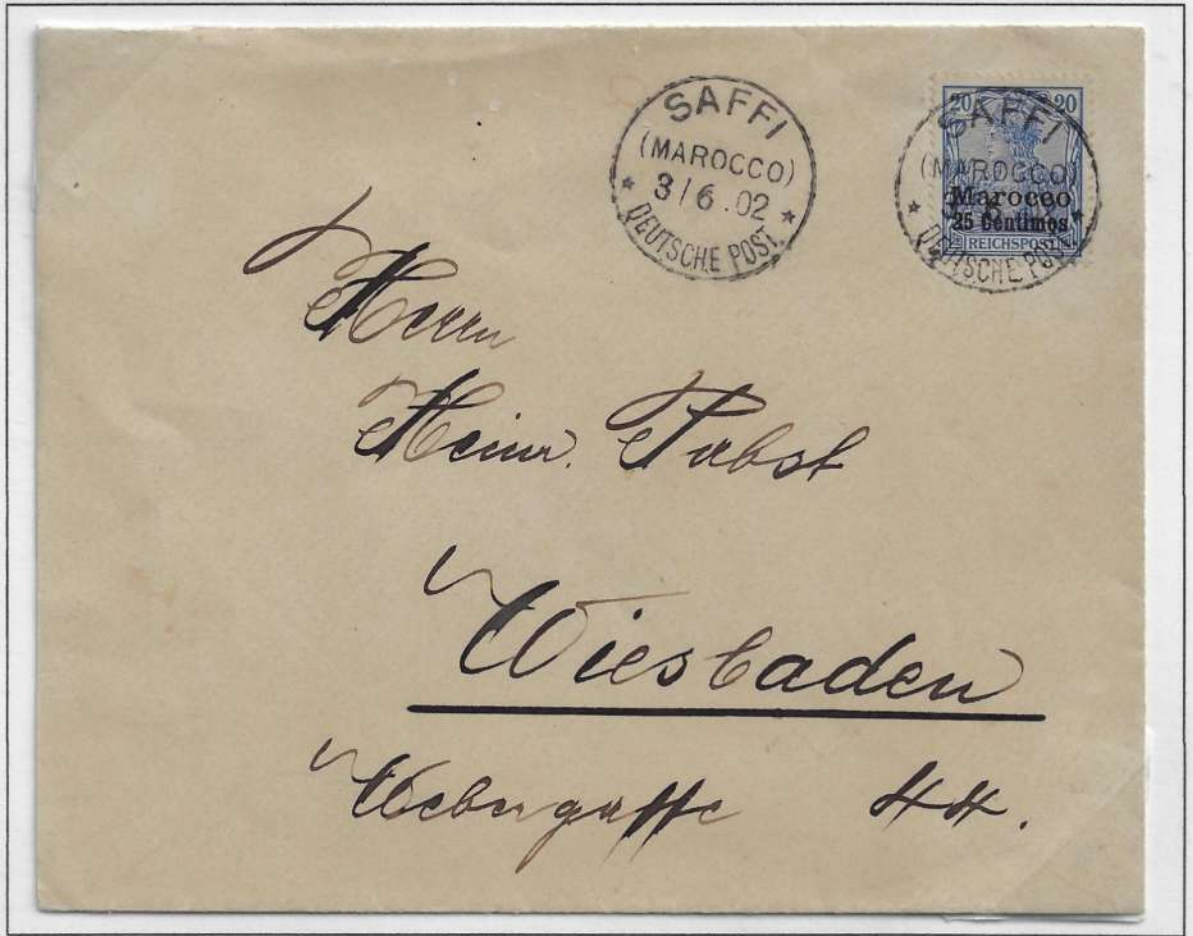 SAFFI
(MAROCCO)
3/6.02
* DEUTSCHE POST. *
20 20
SAFFI
(MAROCCO)
Marocco
25 Centimos
REICHSPOST
* DEUTSCHE POST. *
Herrn
Heinr. Pabst
Wiesbaden
Webergasse 44.